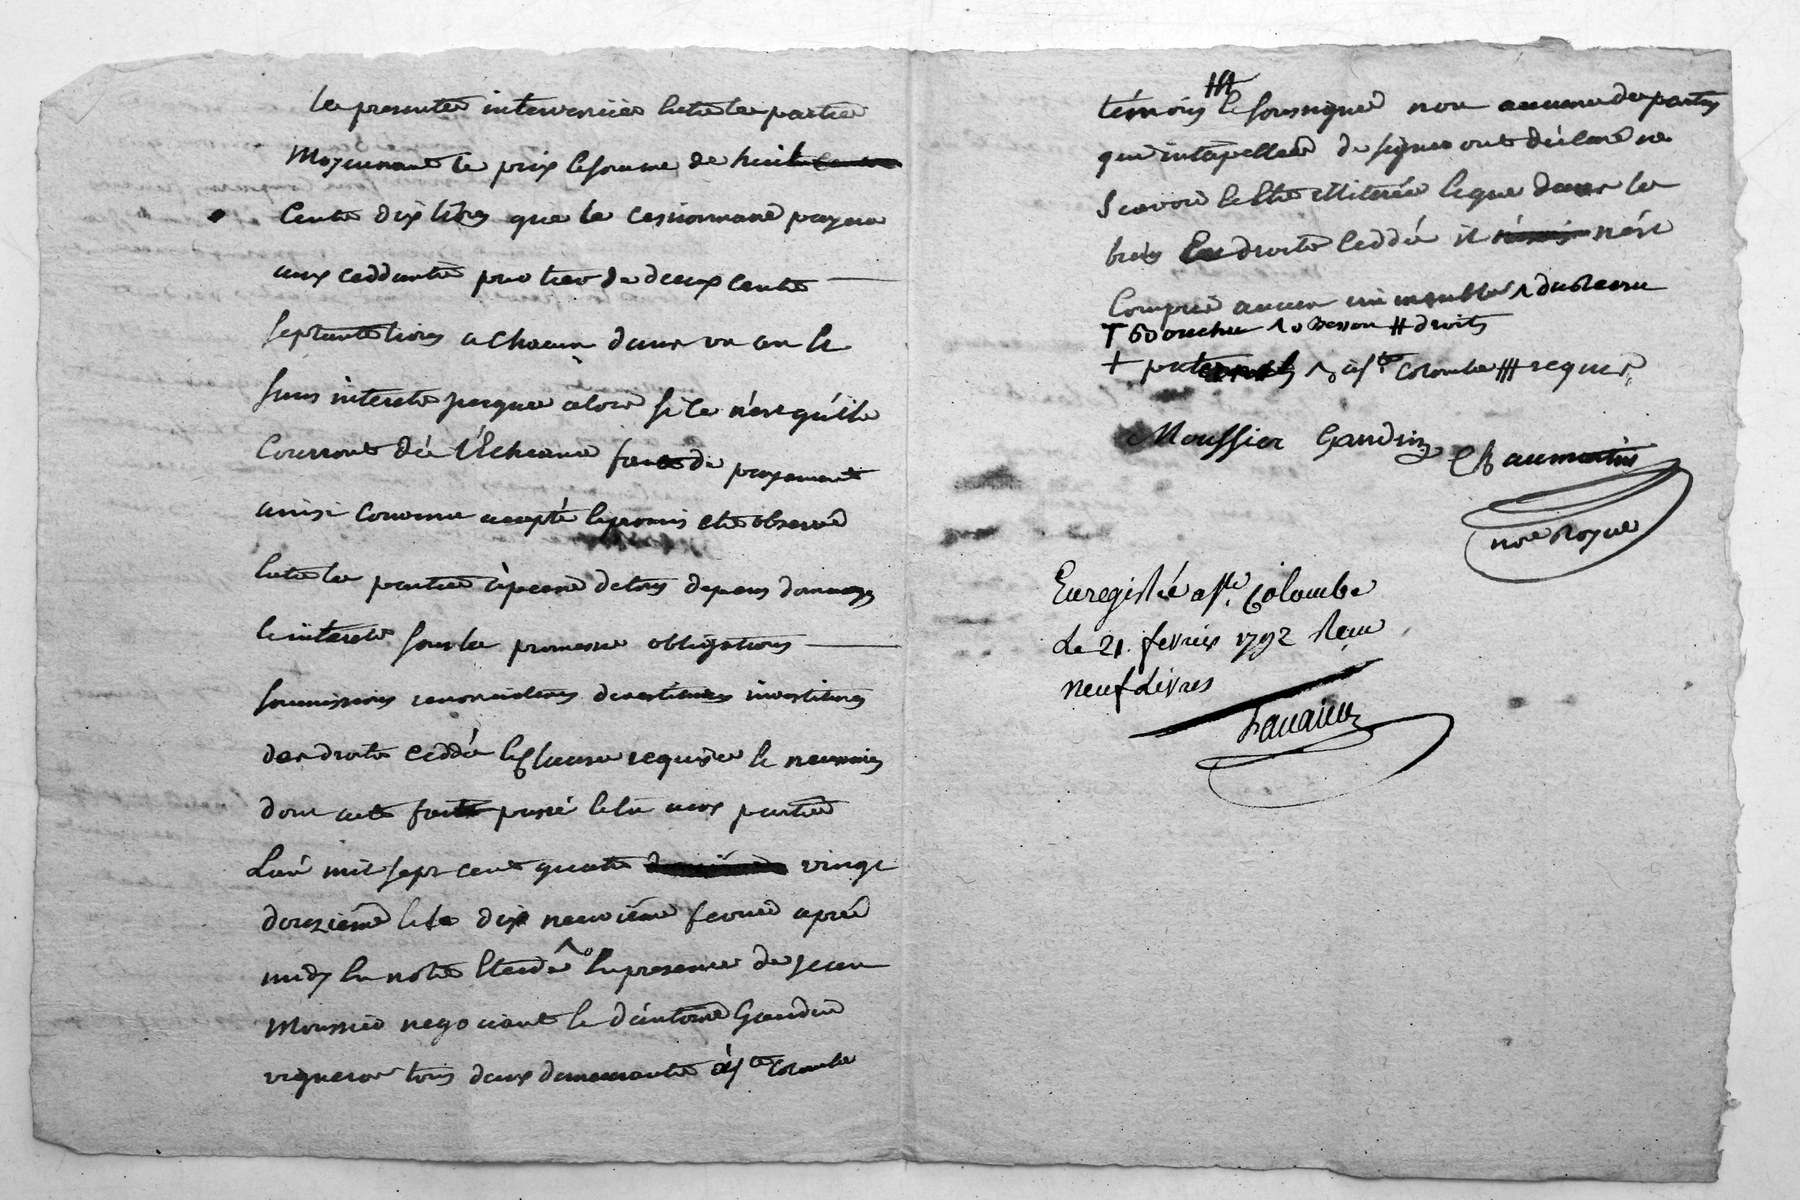 les presentes intervenües entre les parties
Moyennant le prix et somme de huit
cents dix livres que le cessionnaire payera
aux ceddants par tier de deux cents
septante livres a chacun dans un an et
sans interets jusques alors si ce n'est qu'ils
Courront dès l'Echeance faute de payement
ainsi convenu accepté et promis etre observé
entre les parties à peine de tous depens dommages
et interets sous les promesses obligations
soumissions renonciations devestitures investitures
des droits ceddés et clauses requises et necessaires
dont acte fait passé et lu aux parties
L'an mil sept cent quatre vingt
douzième et le dix neuvième fevrier après
midy En notre Etude En presence de jean
Moussier negociant et d'antoine Gaudin
vigneron tous deux demeurants à Ste Colombe
témoins et soussignés non aucune des parties
qui intêpellées de signer ont déclaré ne
Scavoir et être illiterées et que dans les
biens droits Ceddés il n'est
Compris aucun immeubles
droits
à Ste Colombe requis
Moussier Gaudin Chaumartin
nore Royal
Enregistré a Ste Colombe
Le 21. fevrier 1792 Reçu
neuf Livres